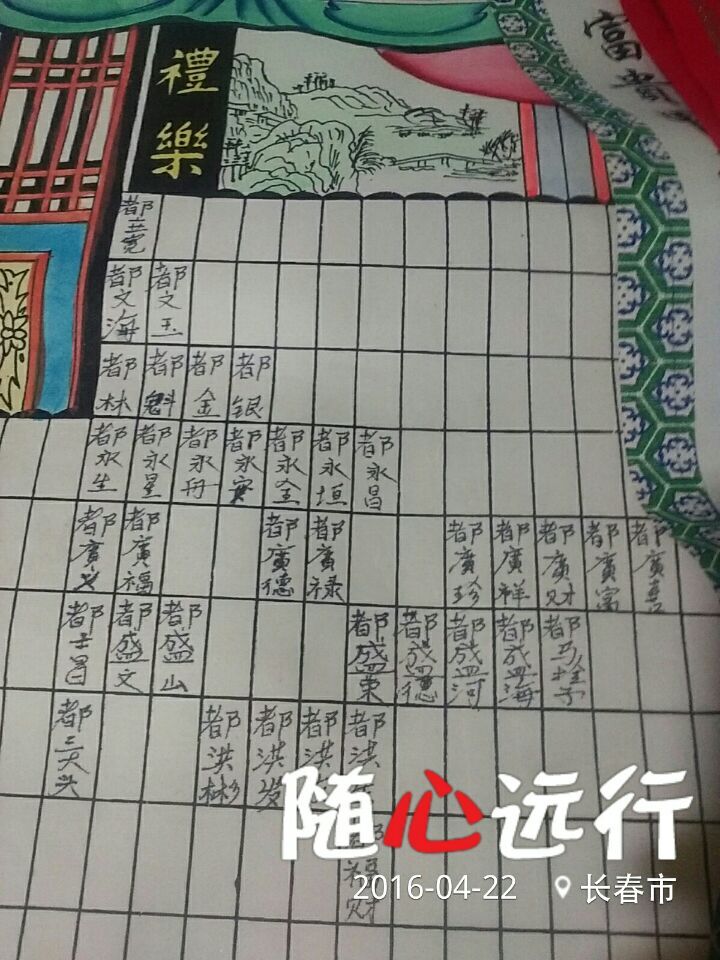 禮樂
富貴
都文海 都文玉
都林 都魁 都金 都银
都永生 都永星 都永舟 都永寅 都永全 都永垣 都永昌
都廣義 都廣福 都廣德 都廣禄 都廣珍 都廣祥 都廣财 都廣富 都廣喜
都士昌 都盛文 都盛山 都盛東 都盛德 都盛河 都盛海
都三大头 都洪彬 都洪发 都洪 都洪
随心远行
2016-04-22 长春市